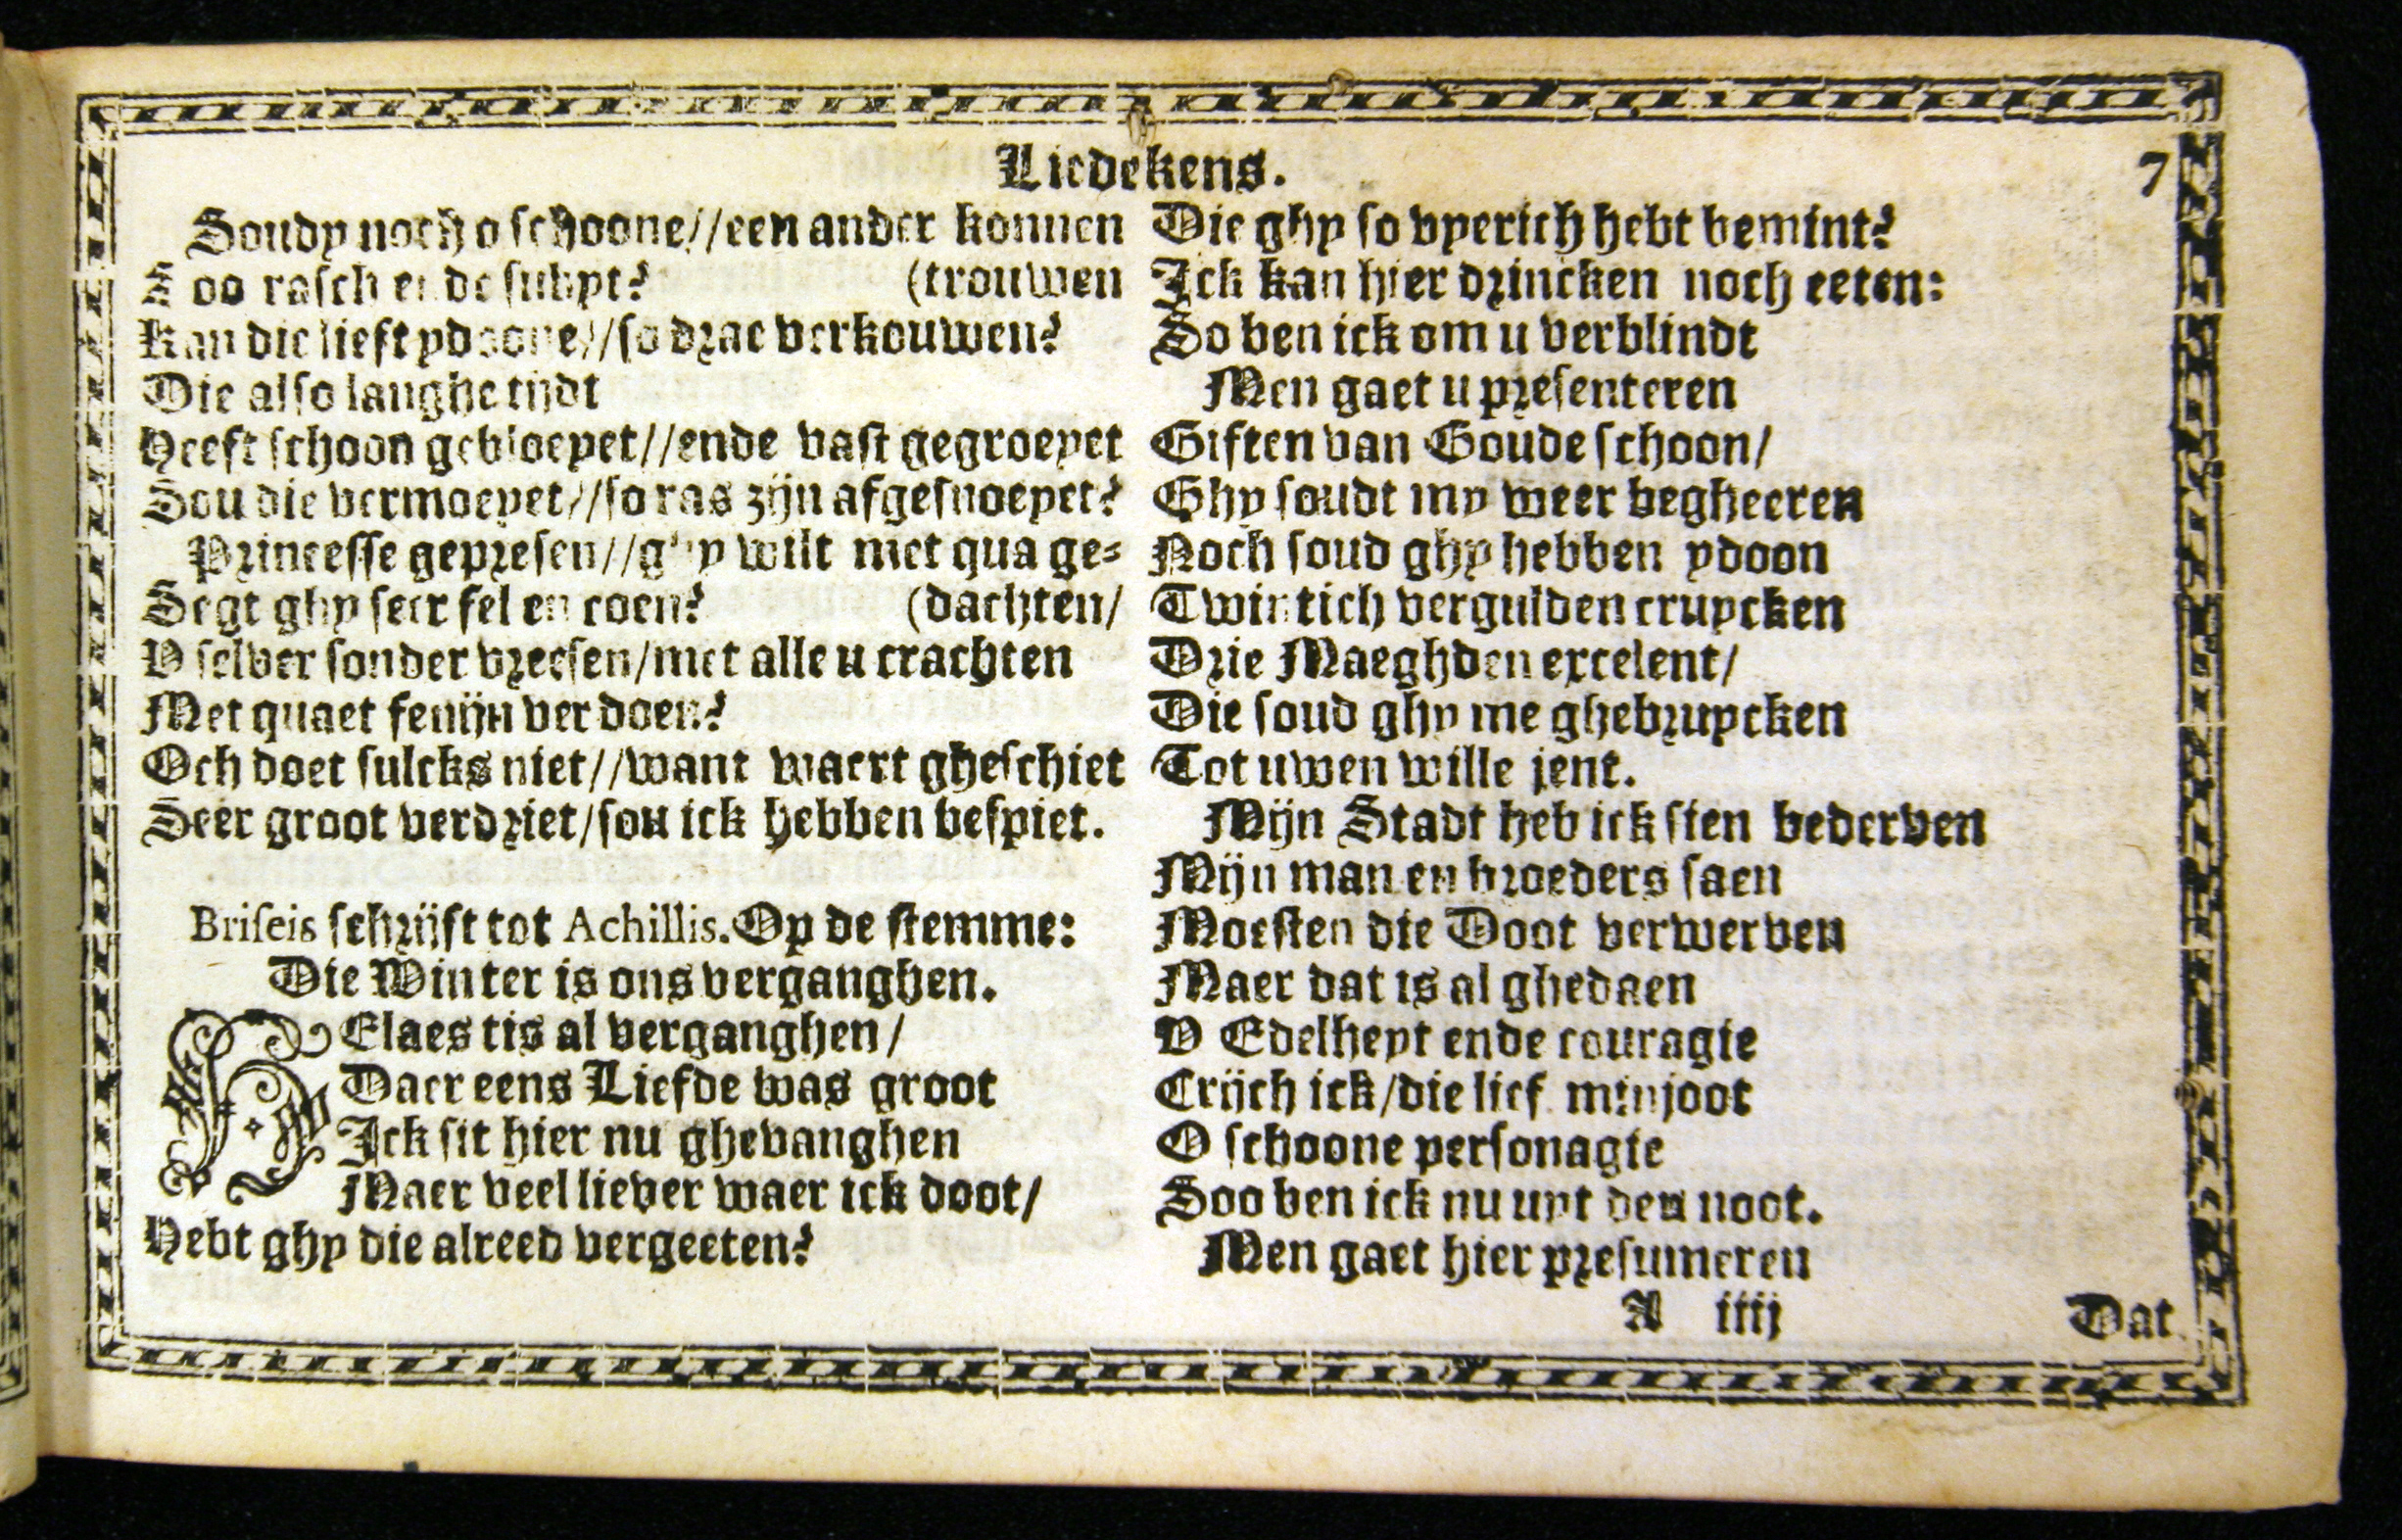 Liedekens. 7
Soudy noch o schoone//een ander konnen
Soo rasch ende subyt? (trouwen
Kan die liest ydoone//so drae verkouwen?
Die also langhe tijdt
Heeft schoon gebloeyet//ende vast gegroeyet
Sou die vermoeyet//so ras zijn afgesnoeyet?
Princesse gepresen//ghy wilt met qua ge-
Segt ghy seer fel en coen? (dachten/
V selver sonder vreesen/met alle u crachten
Met quaet fenijn verdoen?
Och doet sulcks niet//want waert gheschiet
Seer groot verdriet/sou ick hebben bespiet.
Briseis schrijft tot Achillis. Op de stemme:
Die Winter is ons verganghen.
HElaes tis al verganghen/
Daer eens Liefde was groot
Ick sit hier nu ghevanghen
Maer veel liever waer ick doot/
Hebt ghy die alreed vergeeten?
Die ghy so vyerich hebt bemint?
Ick kan hier drincken noch eeten:
So ben ick om u verblindt
Men gaet u presenteren
Giften van Goude schoon/
Ghy soudt my weer begheeren
Noch soud ghy hebben ydoon
Twintich vergulden cruycken
Drie Maeghden excelent/
Die soud ghy me ghebruycken
Tot uwen wille jent.
Mijn Stadt heb ick sien bederven
Mijn man en broeders saen
Moesten die Doot verwerven
Maer dat is al ghedaen
V Edelheyt ende couragie
Crijch ick/die lief minjoot
O schoone personagie
Soo ben ick nu uyt den noot.
Men gaet hier presumeren
A iiij Dat